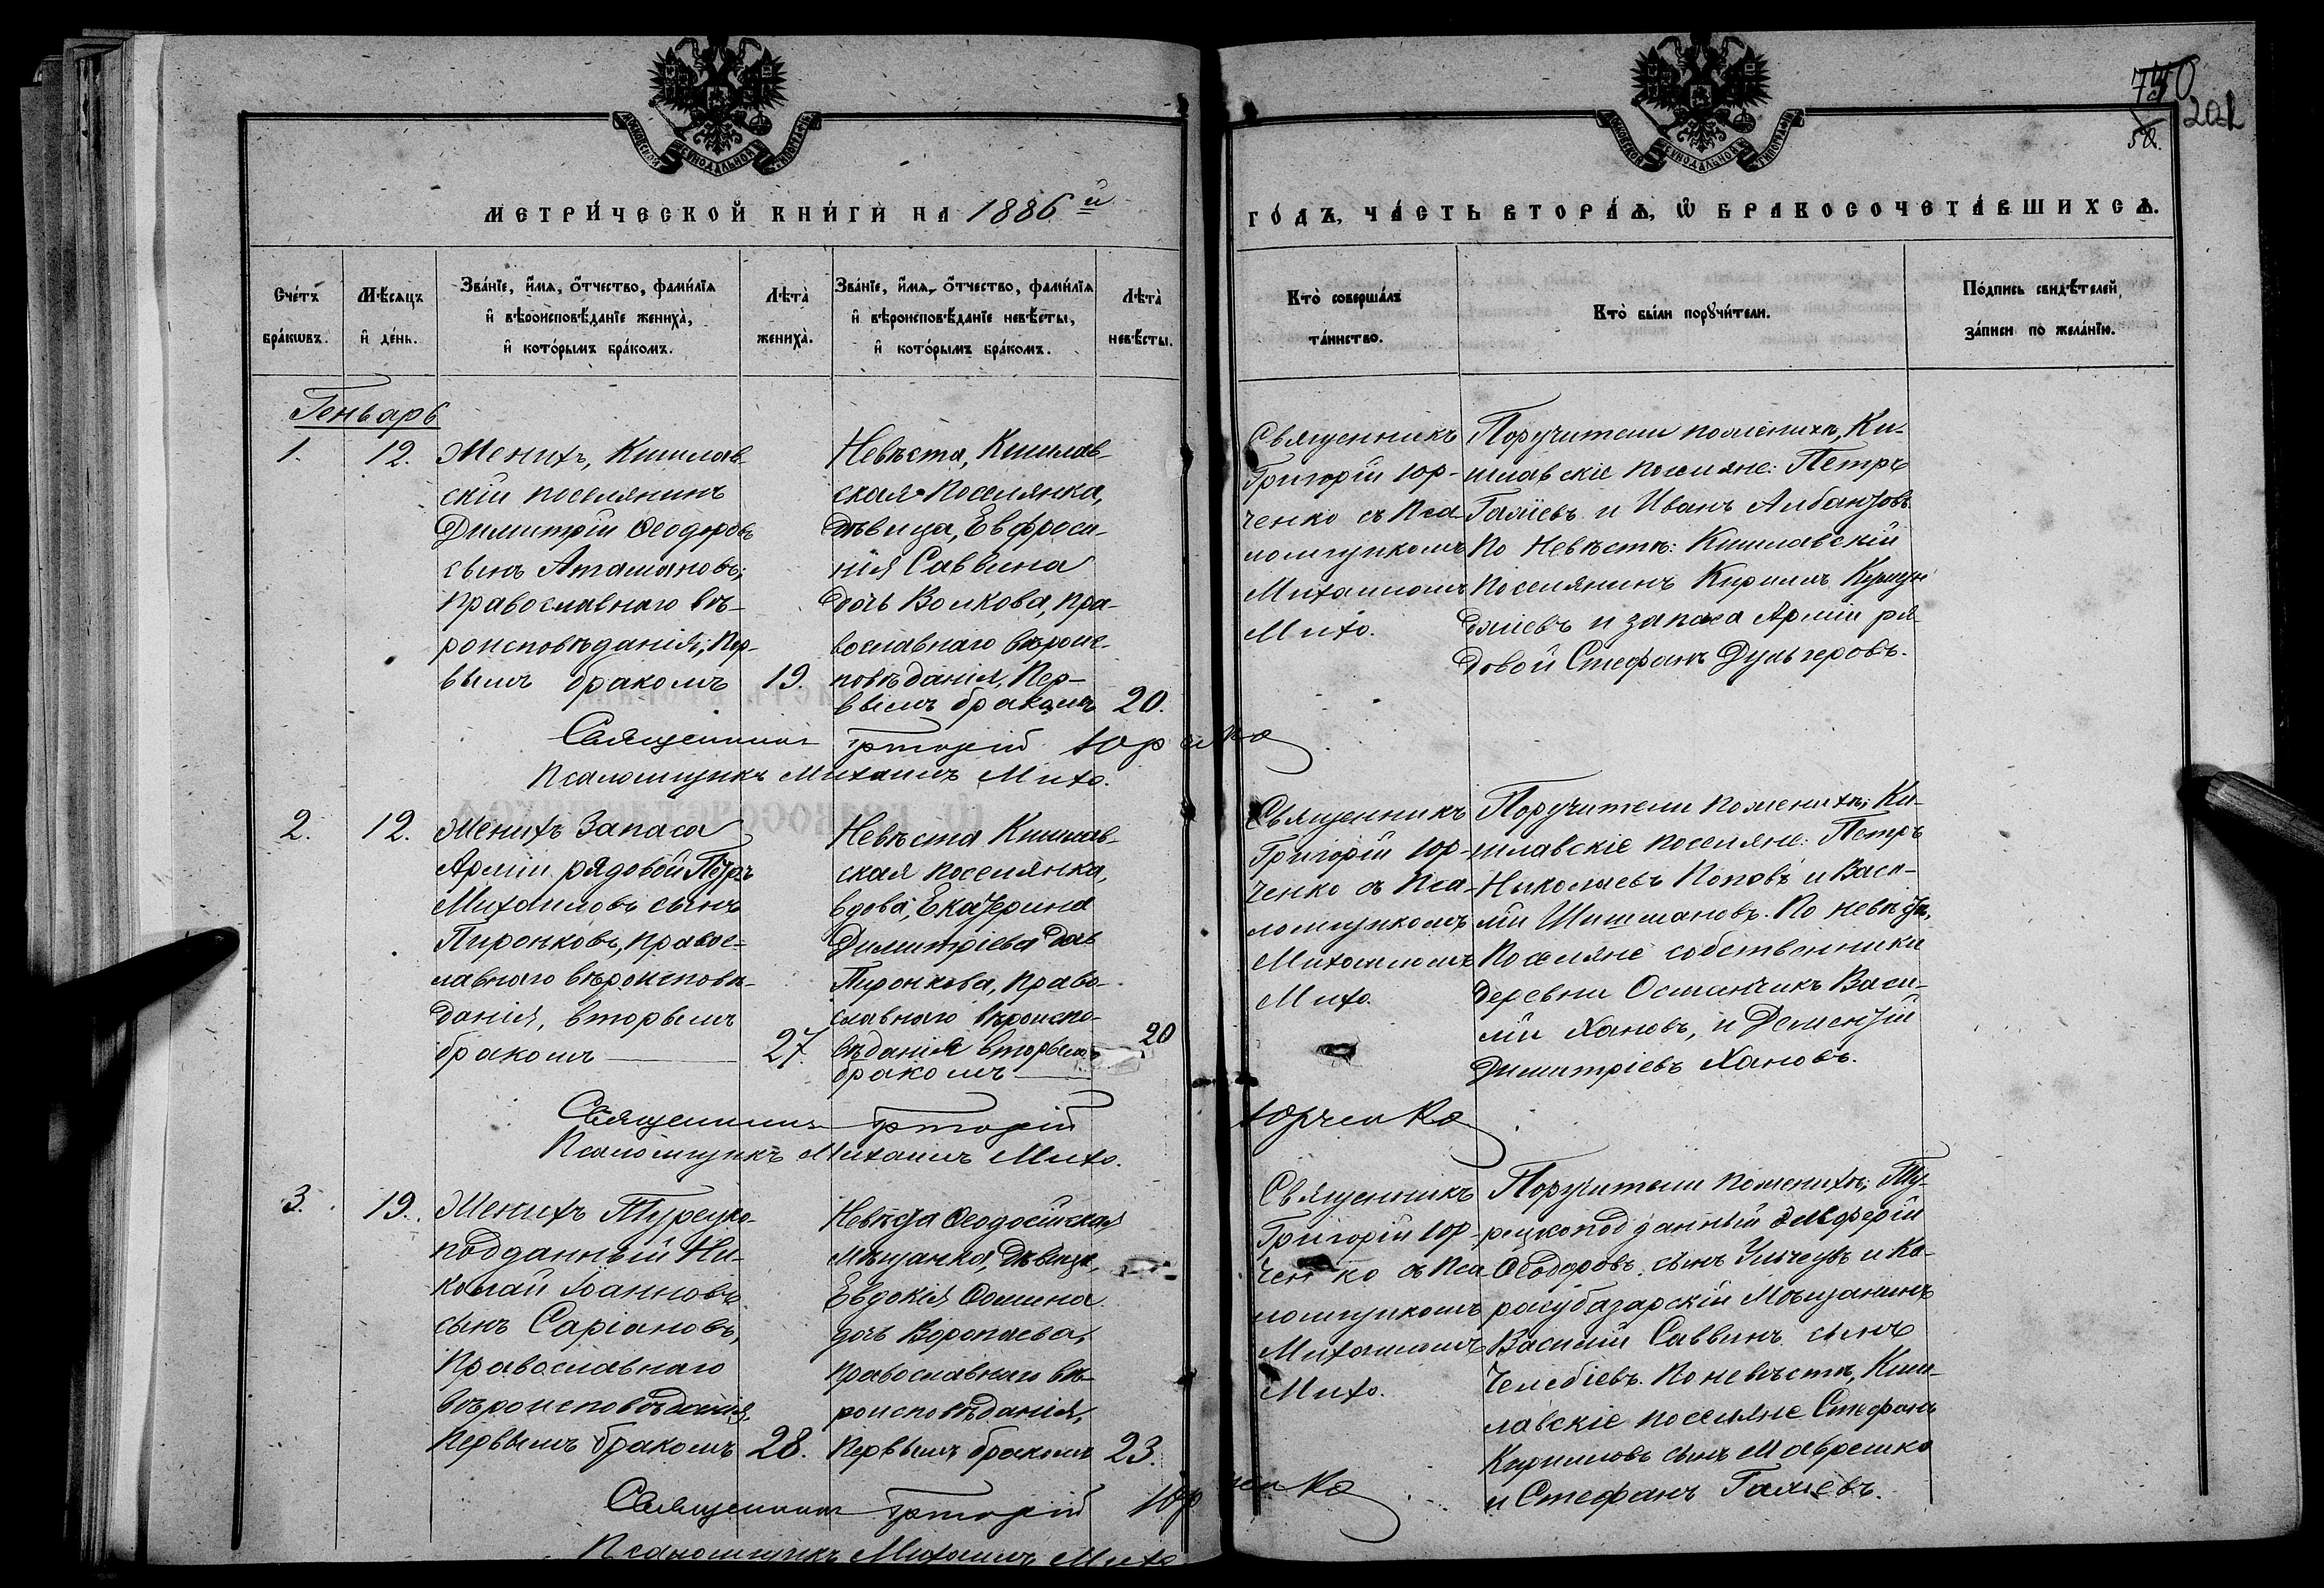 740
201
МОСКОВСКОЙ СИНОДАЛЬНОЙ ТИПОГРАФІИ
МОСКОВСКОЙ СИНОДАЛЬНОЙ ТИПОГРАФІИ
МЕТРИ́ЧЕСКОЙ КНИ́ГИ НА 1886й
ГО́ДЪ, ЧА́СТЬ ВТОРА́Ѧ, Ѡ҆ БРАКОСОЧЕТА́ВШИХСѦ.
Сче́тъ
бра́кѡвъ.
Мѣ́сяцъ
и҆ де́нь.
Зва́нїе, и҆́мя, ѻ҆́тчество, фами́лїя
и҆ вѣроисповѣ́данїе жениха̀,
и҆ кото́рымъ бра́комъ.
Лѣта̀
жениха̀.
Зва́нїе, и҆́мя, ѻ҆́тчество, фами́лїя
и҆ вѣроисповѣ́данїе невѣ́сты,
и҆ кото́рымъ бра́комъ.
Лѣта̀
невѣ́сты.
Кто̀ соверша́лъ
та́инство.
Кто̀ бы́ли порꙋчи́тели.
По́дпись свидѣ́телей
за́писи по жела́нїю.
Генварь
1.
12.
Женихъ, Кишлав-
скій поселянинъ
Димитрій Ѳеодоровъ
сынъ Атамановъ;
православнаго вѣ-
роисповѣданія; пер-
вымъ бракомъ
19.
Невѣста, Кишлав-
ская поселянка,
дѣвица, Евфроси-
нія Саввина
дочь Волкова, пра-
вославнаго вѣроис-
повѣданія, пер-
вымъ бракомъ
20.
Священникъ
Григорій Юр-
ченко съ пса-
ломщикомъ
Михаиломъ
Михо.
Поручители по женихѣ, Ки-
шлавскіе поселяне: Петръ
Галіевъ и Иванъ Албанзовъ
По невѣстѣ: Кишлавскій
поселянинъ Кириллъ
и запаса Арміи ря-
довой Стефанъ Дульгеровъ.
Священникъ Григорій Юрченко
Псаломщикъ Михаилъ Михо.
2.
12.
Женихъ запаса
Арміи рядовой Петръ
Михаиловъ сынъ
Пиронковъ, правос-
лавнаго вѣроисповѣ-
данія, вторымъ
бракомъ
27.
Невѣста Кишлав-
ская поселянка,
вдова, Екатерина
Димитріева дочь
Пиронкова, право-
славнаго вѣроиспо-
вѣданія вторымъ
бракомъ
20
Священникъ
Григорій Юр-
ченко съ пса-
ломщикомъ
Михаиломъ
Михо.
Поручители по женихѣ; Ки-
шлавскіе поселяне: Петръ
Николаевъ Поповъ и Васи-
лій Шишмановъ. По невѣстѣ,
поселяне собственники
деревни Османчикъ Васи-
лій Хановъ, и Дементій
Димитріевъ Хановъ.
Священникъ Григорій Юрченко
Псаломщикъ Михаилъ Михо.
3.
19.
Женихъ Турецко-
подданный Ни-
колай Іоанновъ
сынъ Саріановъ,
православнаго
вѣроисповѣданія,
первымъ бракомъ
28.
Невѣста Ѳеодосійская
мѣщанка, дѣвица,
Евдокія Ѳомина
дочь Воропаева,
православнаго вѣ-
роисповѣданія,
первымъ бракомъ
23.
Священникъ
Григорій Юр-
ченко съ пса-
ломщикомъ
Михаиломъ
Михо.
Поручители по женихѣ; Ту-
рецкоподданный Элеферій
Ѳеодоровъ сынъ и Ка-
расубазарскій мѣщанинъ
Василій Саввинъ сынъ
Челебіевъ. По невѣстѣ, Киш-
лавскіе поселяне Стефанъ
Кирилловъ сынъ Маврешко
и Стефанъ Галіевъ.
Священникъ Григорій Юрченко
Псаломщикъ Михаилъ Михо